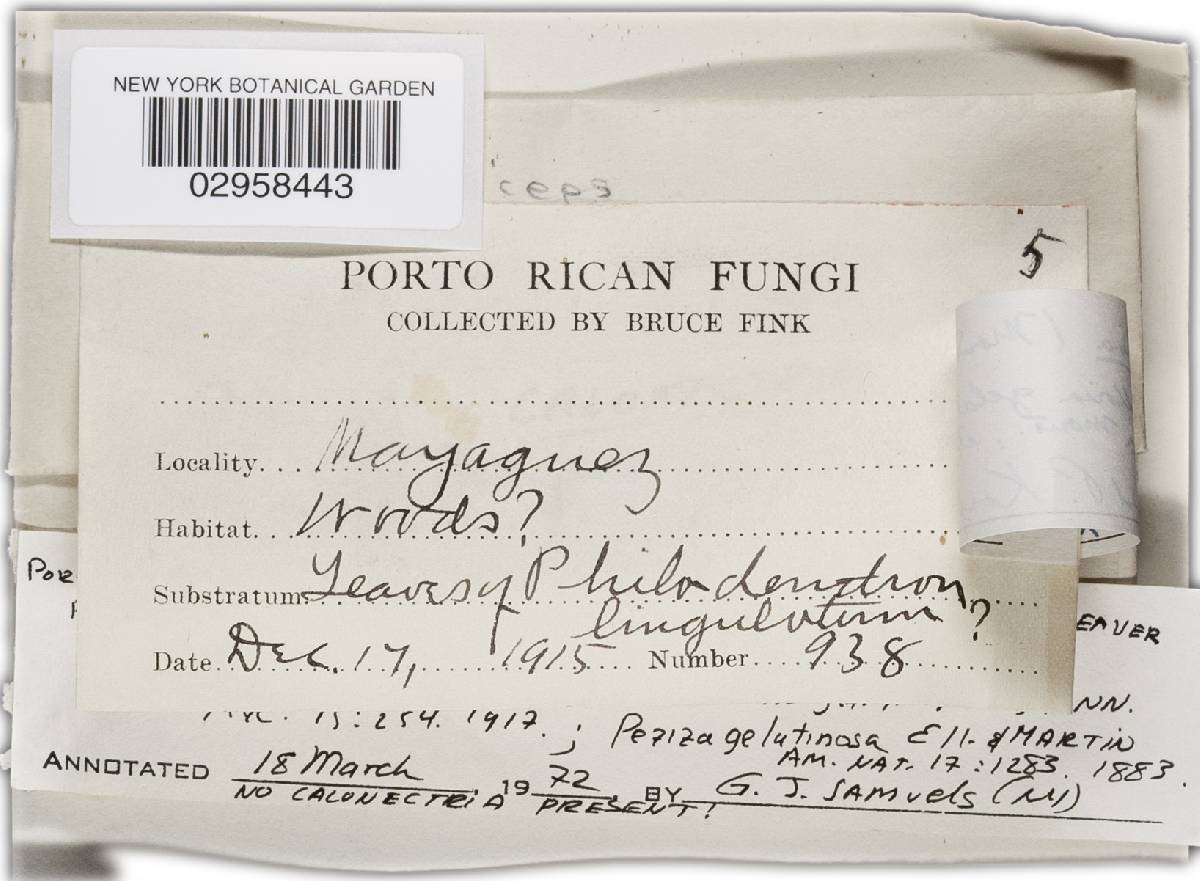 NEW YORK BOTANICAL GARDEN
02958443
ceps
5
PORTO RICAN FUNGI
COLLECTED BY BRUCE FINK
Locality... Mayaguez
Habitat... Woods?
Substratum. Leaves of Philodendron
lingulatum?
Date. Dec. 17, 1915 Number 938
POR
EAVER
NN.
15:254. 1917. ; Peziza gelutinosa Ell. & MARTIN
AM. NAT. 17:1283. 1883.
ANNOTATED 18 March 1972 BY G. J. SAMUELS (NY)
NO CALONECTRIA PRESENT!